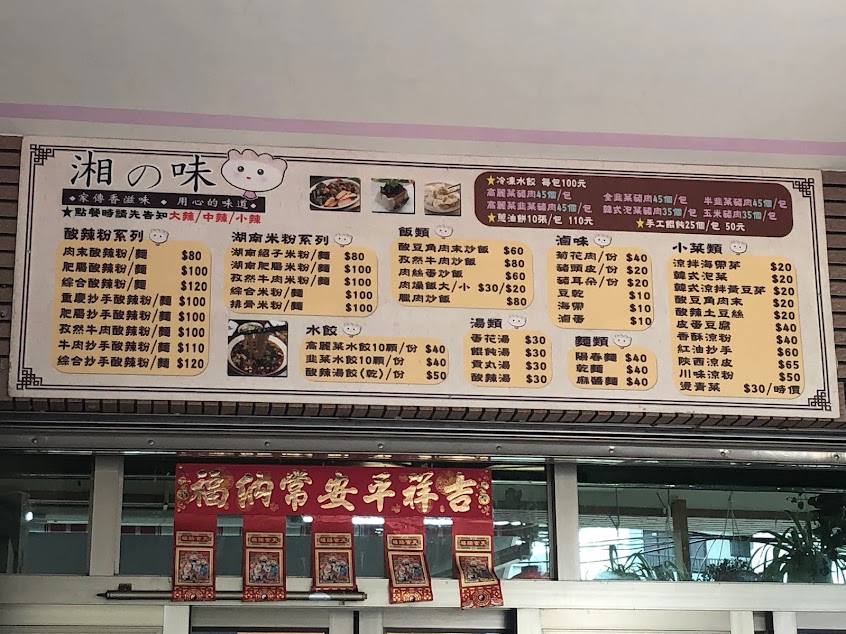 湘の味
◆家傳香滋味 ◆ 用心的味道◆
★點餐時請先告知大辣/中辣/小辣
酸辣粉系列
肉末酸辣粉/麵 $80
肥腸酸辣粉/麵 $100
綜合酸辣粉/麵 $120
重慶抄手酸辣粉/麵 $100
肥腸抄手酸辣粉/麵 $100
孜然牛肉酸辣粉/麵 $100
牛肉抄手酸辣粉/麵 $110
綜合抄手酸辣粉/麵 $120
湖南米粉系列
湖南紹子米粉/麵 $80
湖南肥腸米粉/麵 $100
孜然牛肉米粉/麵 $100
綜合米粉/麵 $100
排骨米粉/麵 $100
水餃
高麗菜水餃10顆/份 $40
韭菜水餃10顆/份 $40
酸辣湯餃(乾)/份 $50
飯類
酸豆角肉末炒飯 $60
孜然牛肉炒飯 $80
肉絲蛋炒飯 $60
肉燥飯大/小 $30/$20
臘肉炒飯 $80
湯類
香花湯 $30
餛飩湯 $30
貢丸湯 $30
酸辣湯 $30
★冷凍水餃 每包100元
高麗菜豬肉45個/包 全韭菜豬肉45個/包 半韭菜豬肉45個/包
高麗菜韭菜豬肉45個/包 韓式泡菜豬肉35個/包 玉米豬肉35個/包
★蔥油餅10張/包 110元 ★手工餛飩25個/包 50元
滷味
菊花肉/份 $40
豬頭皮/份 $20
豬耳朵/份 $20
豆乾 $10
海帶 $10
滷蛋 $10
麵類
陽春麵 $40
乾麵 $40
麻醬麵 $40
小菜類
涼拌海帶芽 $20
韓式泡菜 $20
韓式涼拌黃豆芽 $20
酸豆角肉末 $20
酸辣土豆絲 $20
皮蛋豆腐 $40
香酥涼粉 $40
紅油抄手 $60
陝西涼皮 $65
川味涼粉 $50
燙青菜 $30/時價
福納常安平祥吉